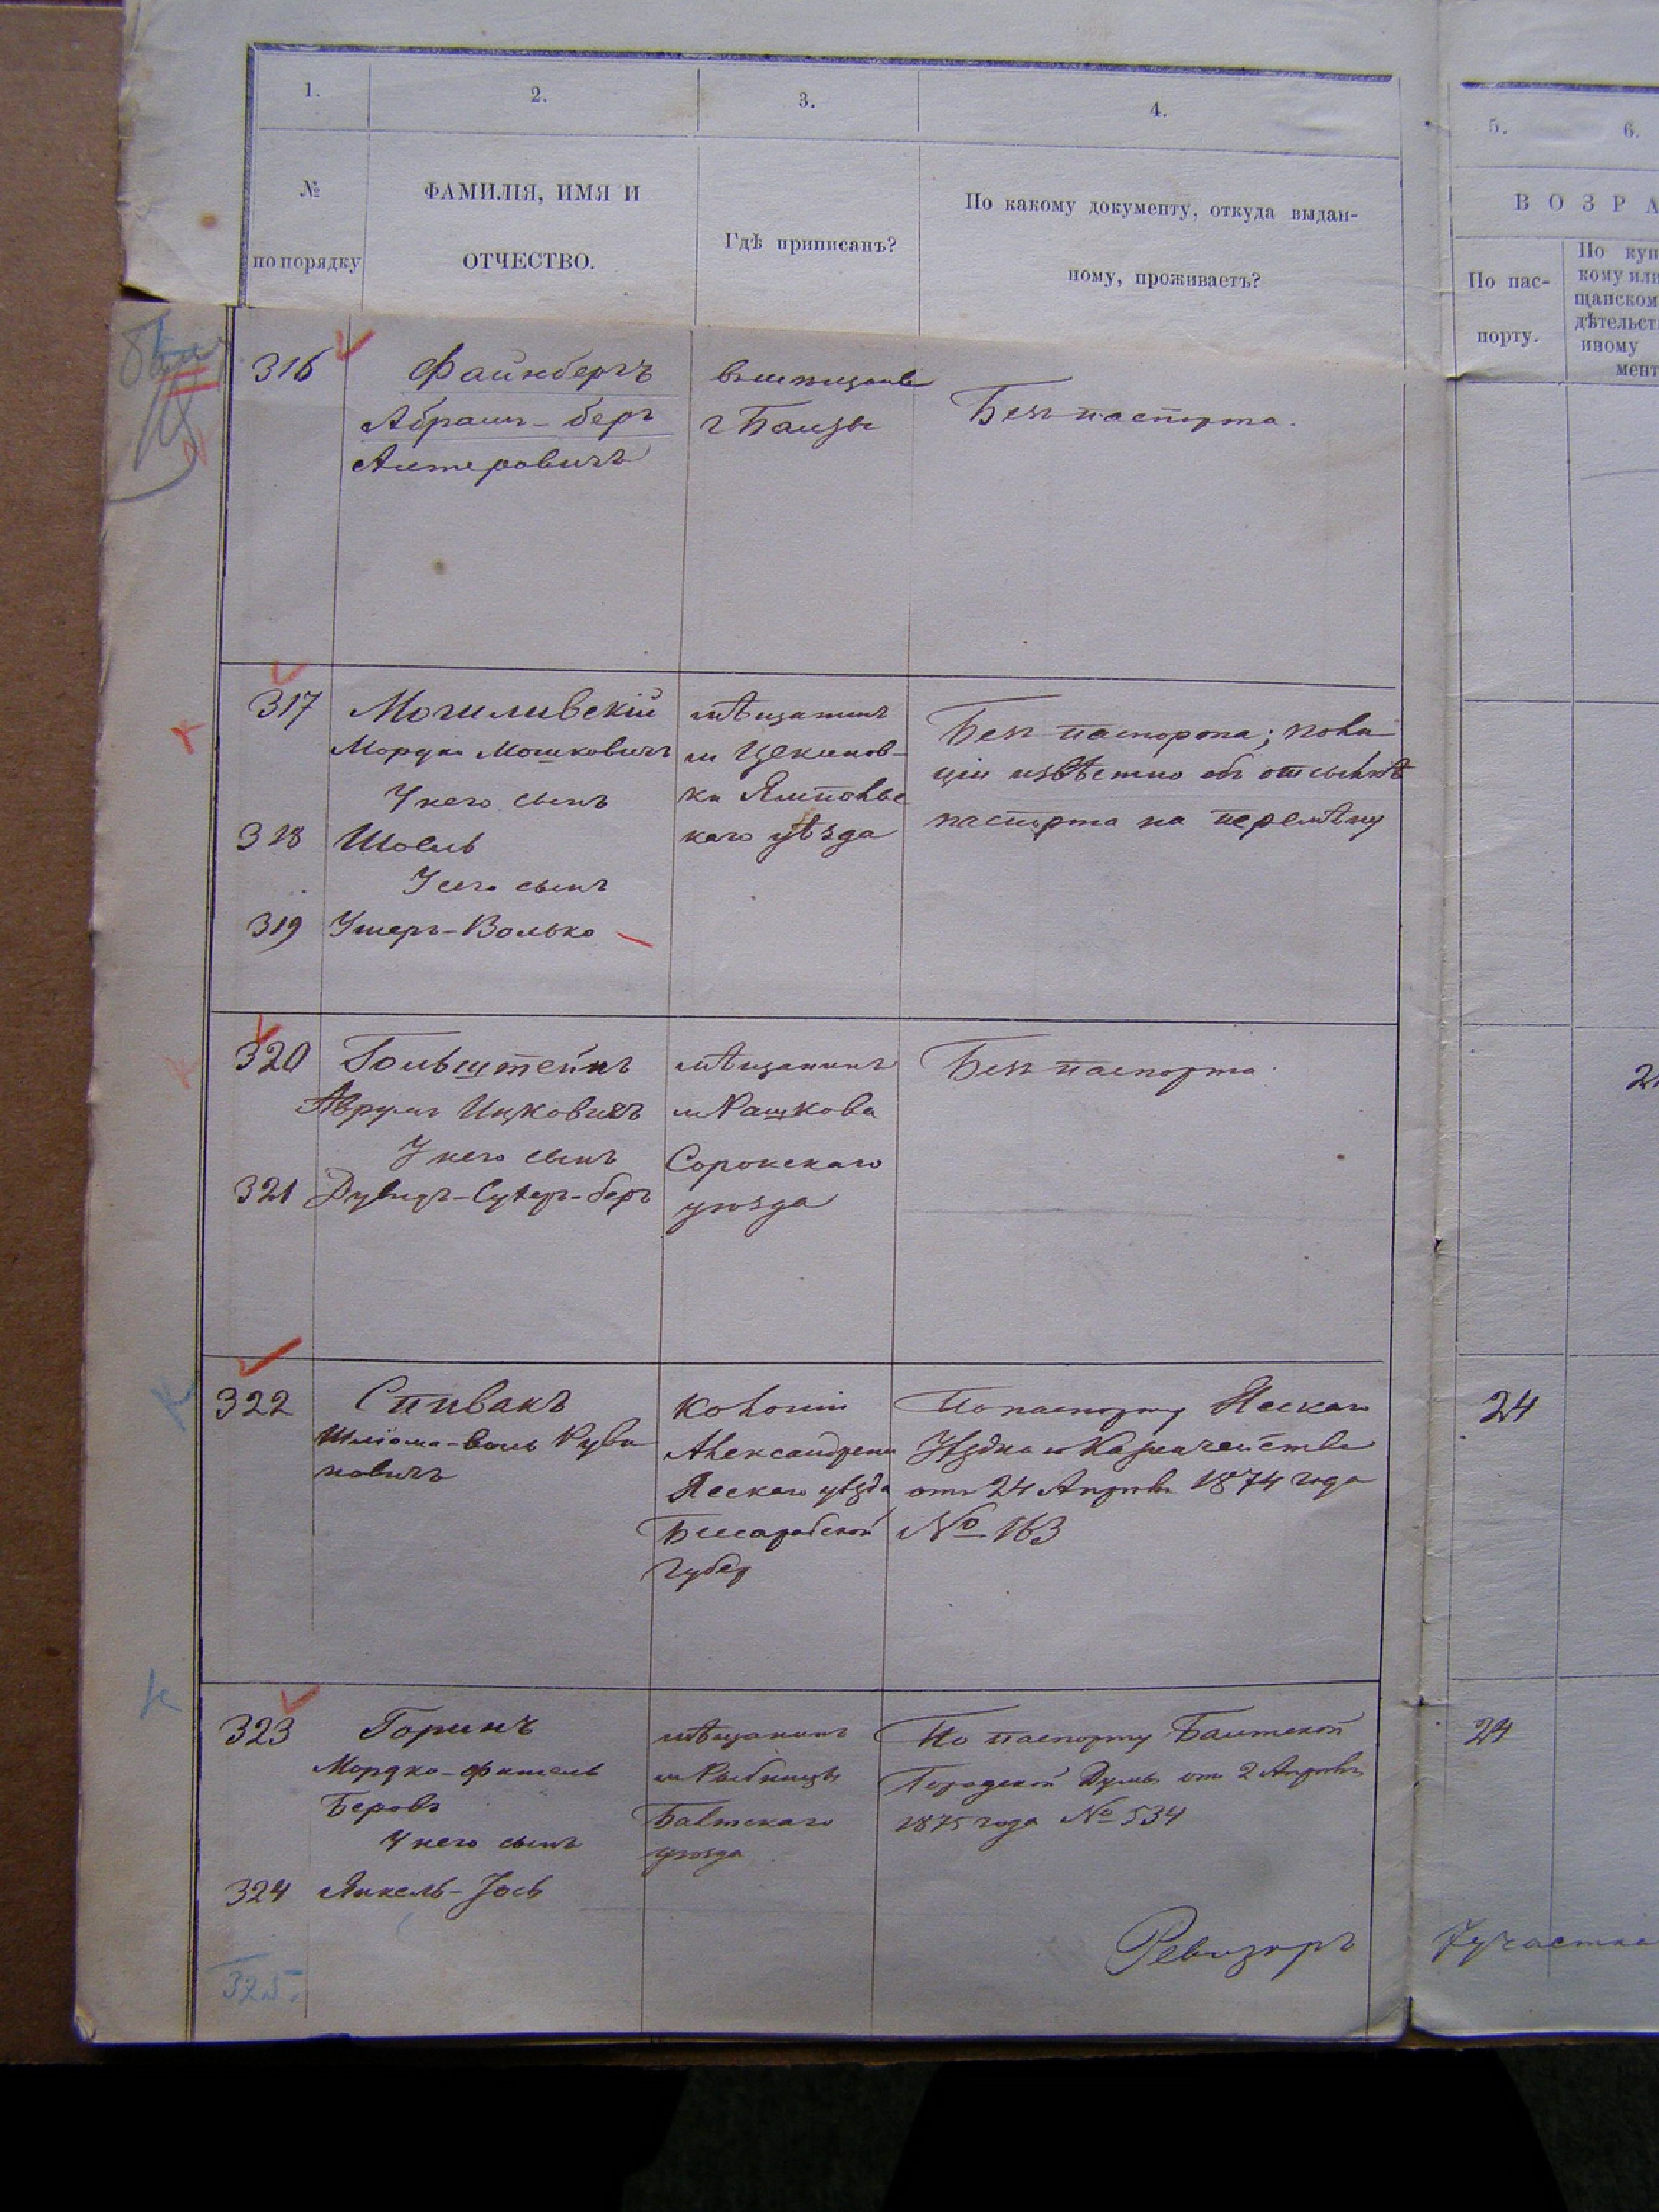 1. 2. 3. 4. 5. 6.
№ по порядку
ФАМИЛІЯ, ИМЯ И
ОТЧЕСТВО.
Гдѣ приписанъ?
По какому документу, откуда выдан-
ному, проживаетъ?
ВОЗРА
По пас-
порту.
По куп
кому или
щанском
дѣтельст
иному
мент
316 Файнбергъ
Абрамъ-беръ
Алтеровичъ
г Балты
Безъ паспорта.
317 Могиливскій
Мордко Мошковичъ
У него сынъ
318 Шоель
У сего сынъ
319 Ушеръ-Волько
мѣщанинъ
м Цекинов-
ки Ямпольс
каго уѣзда
Безъ паспорта; поли-
ціи извѣстно объ отсылкѣ
паспорта на перемѣну
320 Гольштейнъ
Аврумъ Ицковичъ
У него сынъ
321 Дувидъ-Сухеръ-беръ
мѣщанинъ
м Рашкова
Сорокскаго
уѣзда
Безъ паспорта.
322 Спивакъ
Шлёма-воль Руви
новичъ
Колоніи
Александрени
Ясскаго уѣзда
Бессарабской
губер
По паспорту Ясскаго
Уѣзднаго Казначейства
отъ 24 Апрѣля 1874 года
№ 163
24
323 Горинъ
Мордко-фишель
Беровъ
У него сынъ
324 Янкель-Іось
мѣщанинъ
м Рыбницы
Балтскаго
уѣзда
По паспорту Балтской
Городской Думы отъ 2 Апрѣля
1875 года № 534
24
Ревизоръ 7 участка
325.